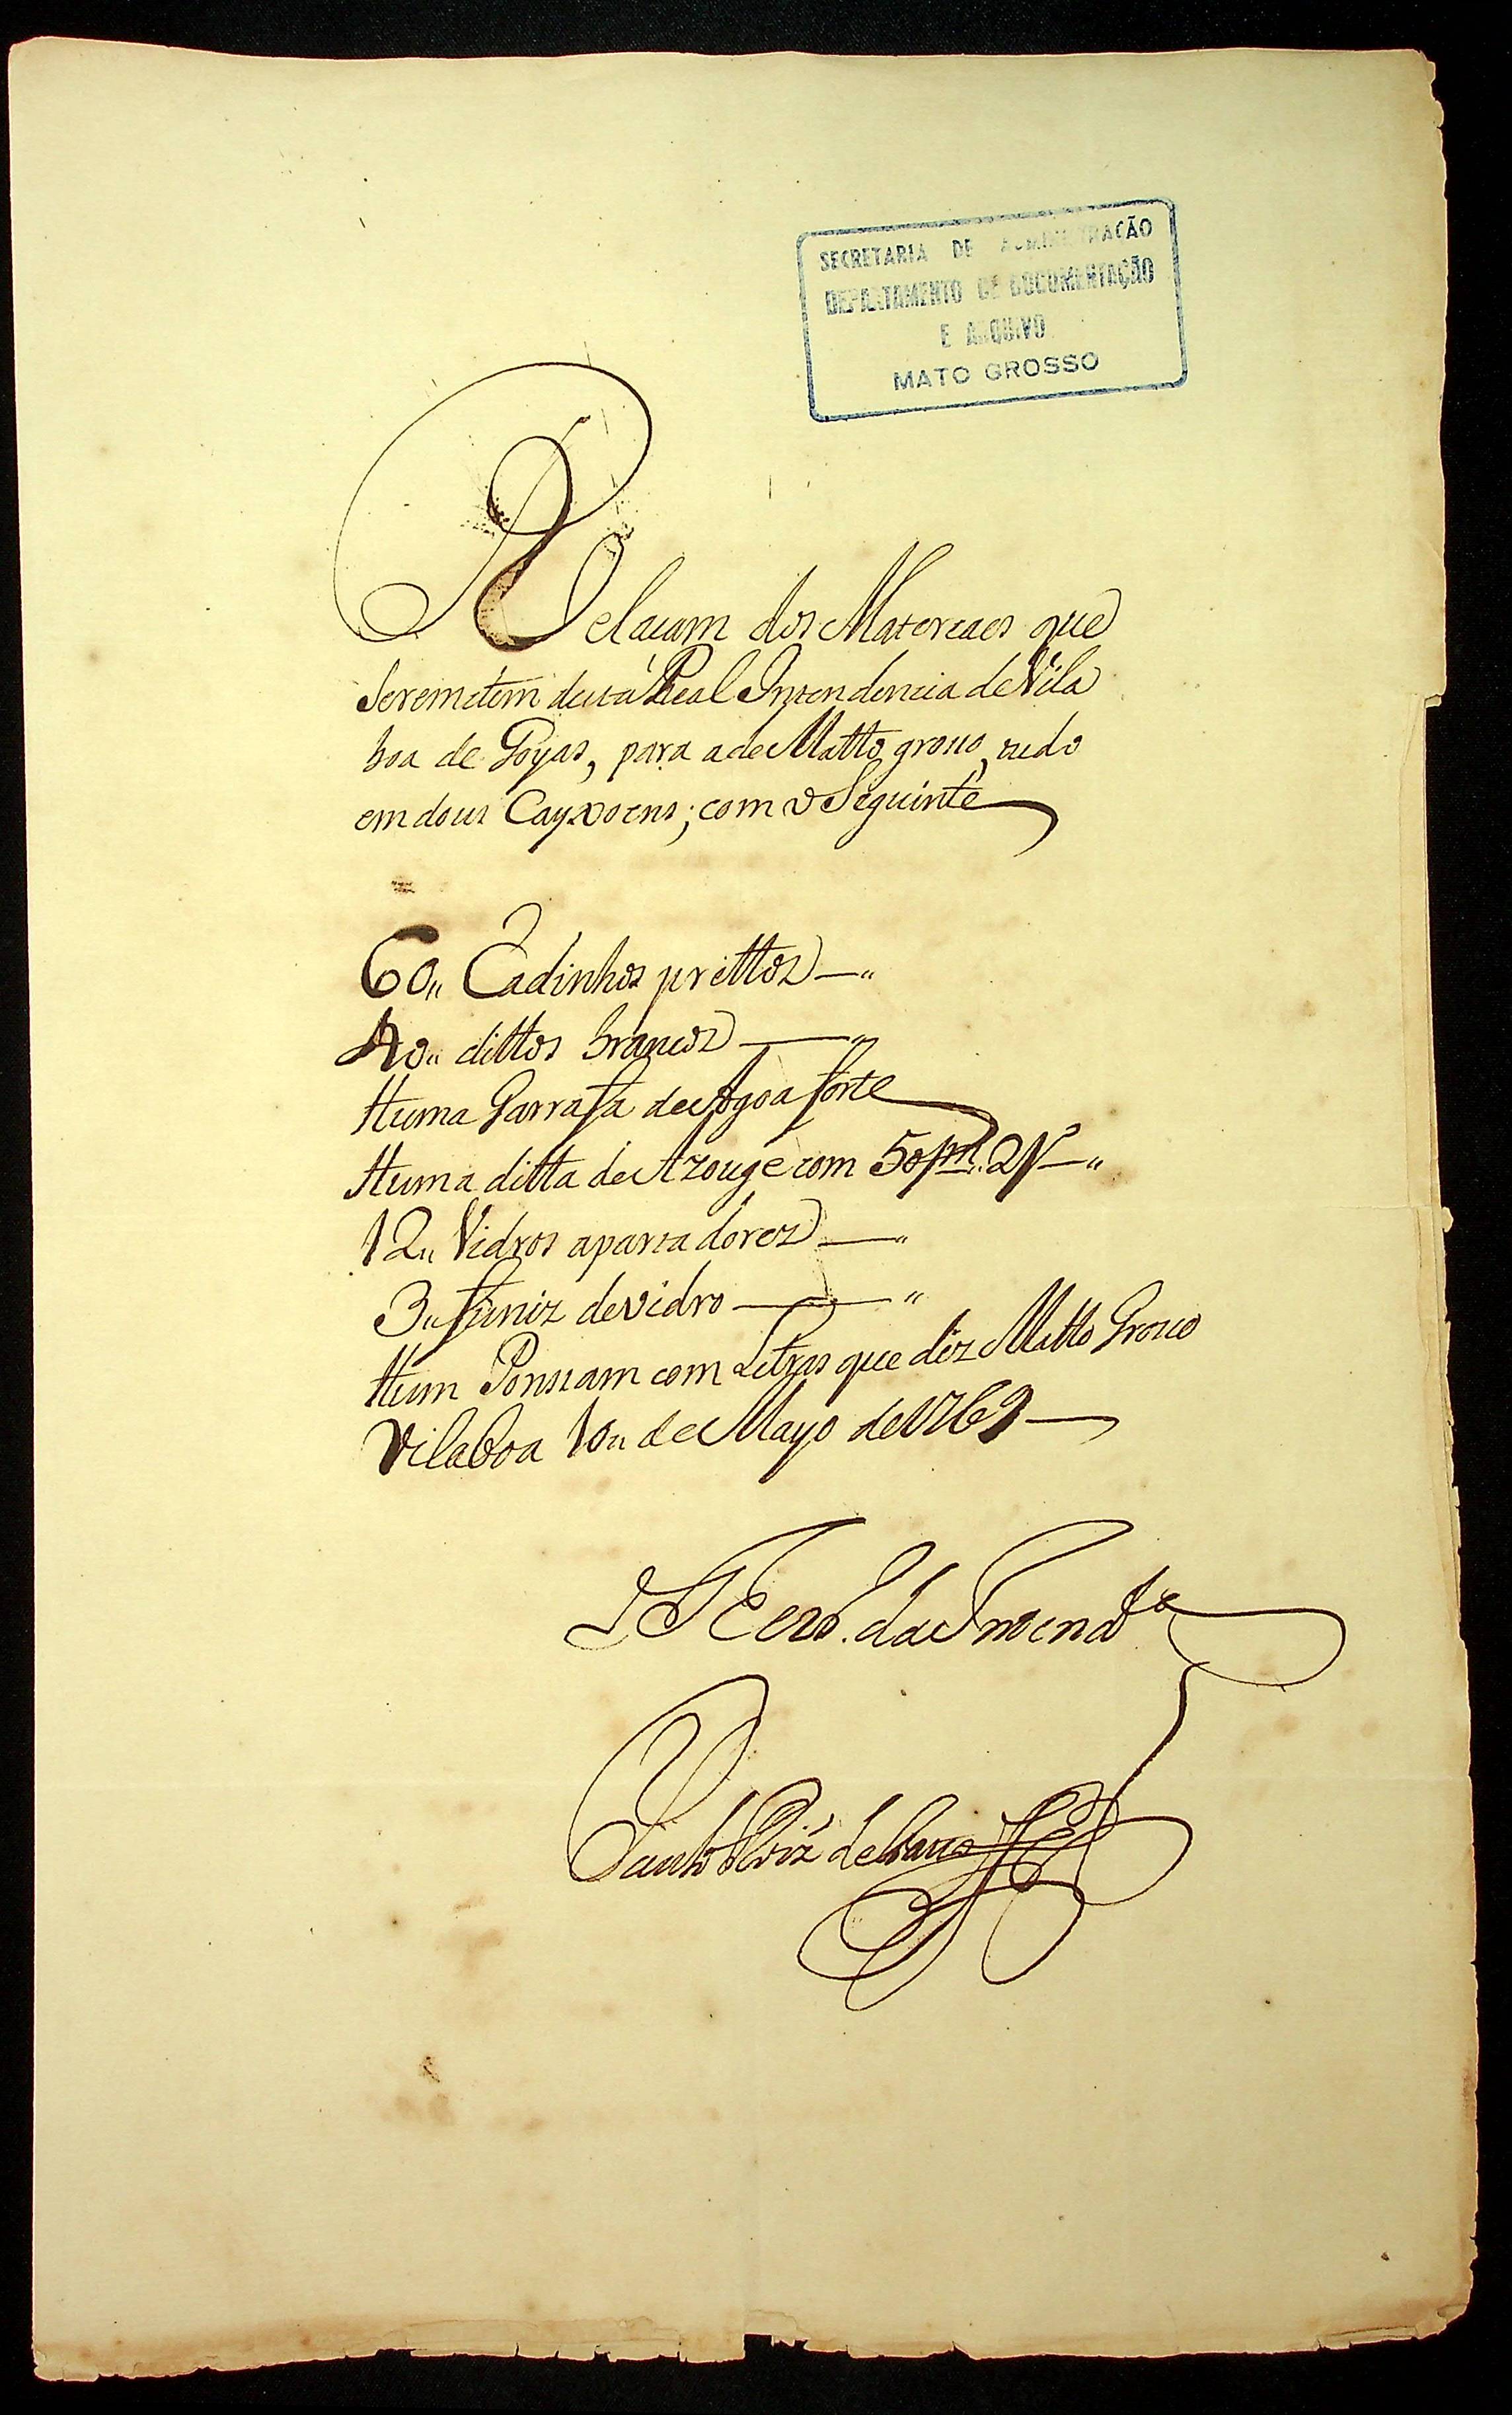 SECRETARIA DE ADMINISTRAÇÃO
DEPARTAMENTO DE DOCUMENTAÇÃO
E ARQUIVO
MATO GROSSO
Relacam dos Matereaes que
Seremetem desta Real Intendencia de Vila
boa de Goyas, para a de Matto groso, tudo
em dous Cayxoens; com o Seguinte
60,, Cadinhos prettos
40,, dittos brancos
Huma Garrafa de Agoa forte
Huma ditta de Azouge com 50
12,, Vidros apartadores
3,, funiz devidro
Hum Ponsam com Letras que diz Matto Groso
Vila boa 10,, de Mayo de 1769
da Intend.ª